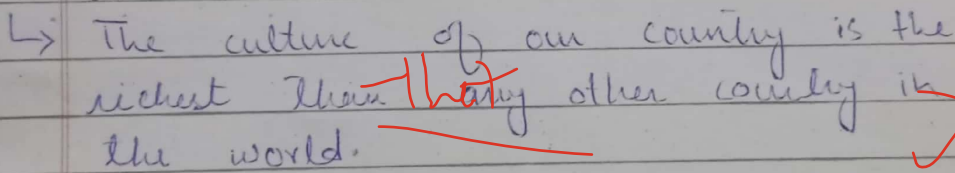 ↳ The culture of our country is the
richest than that any other country in
the world.